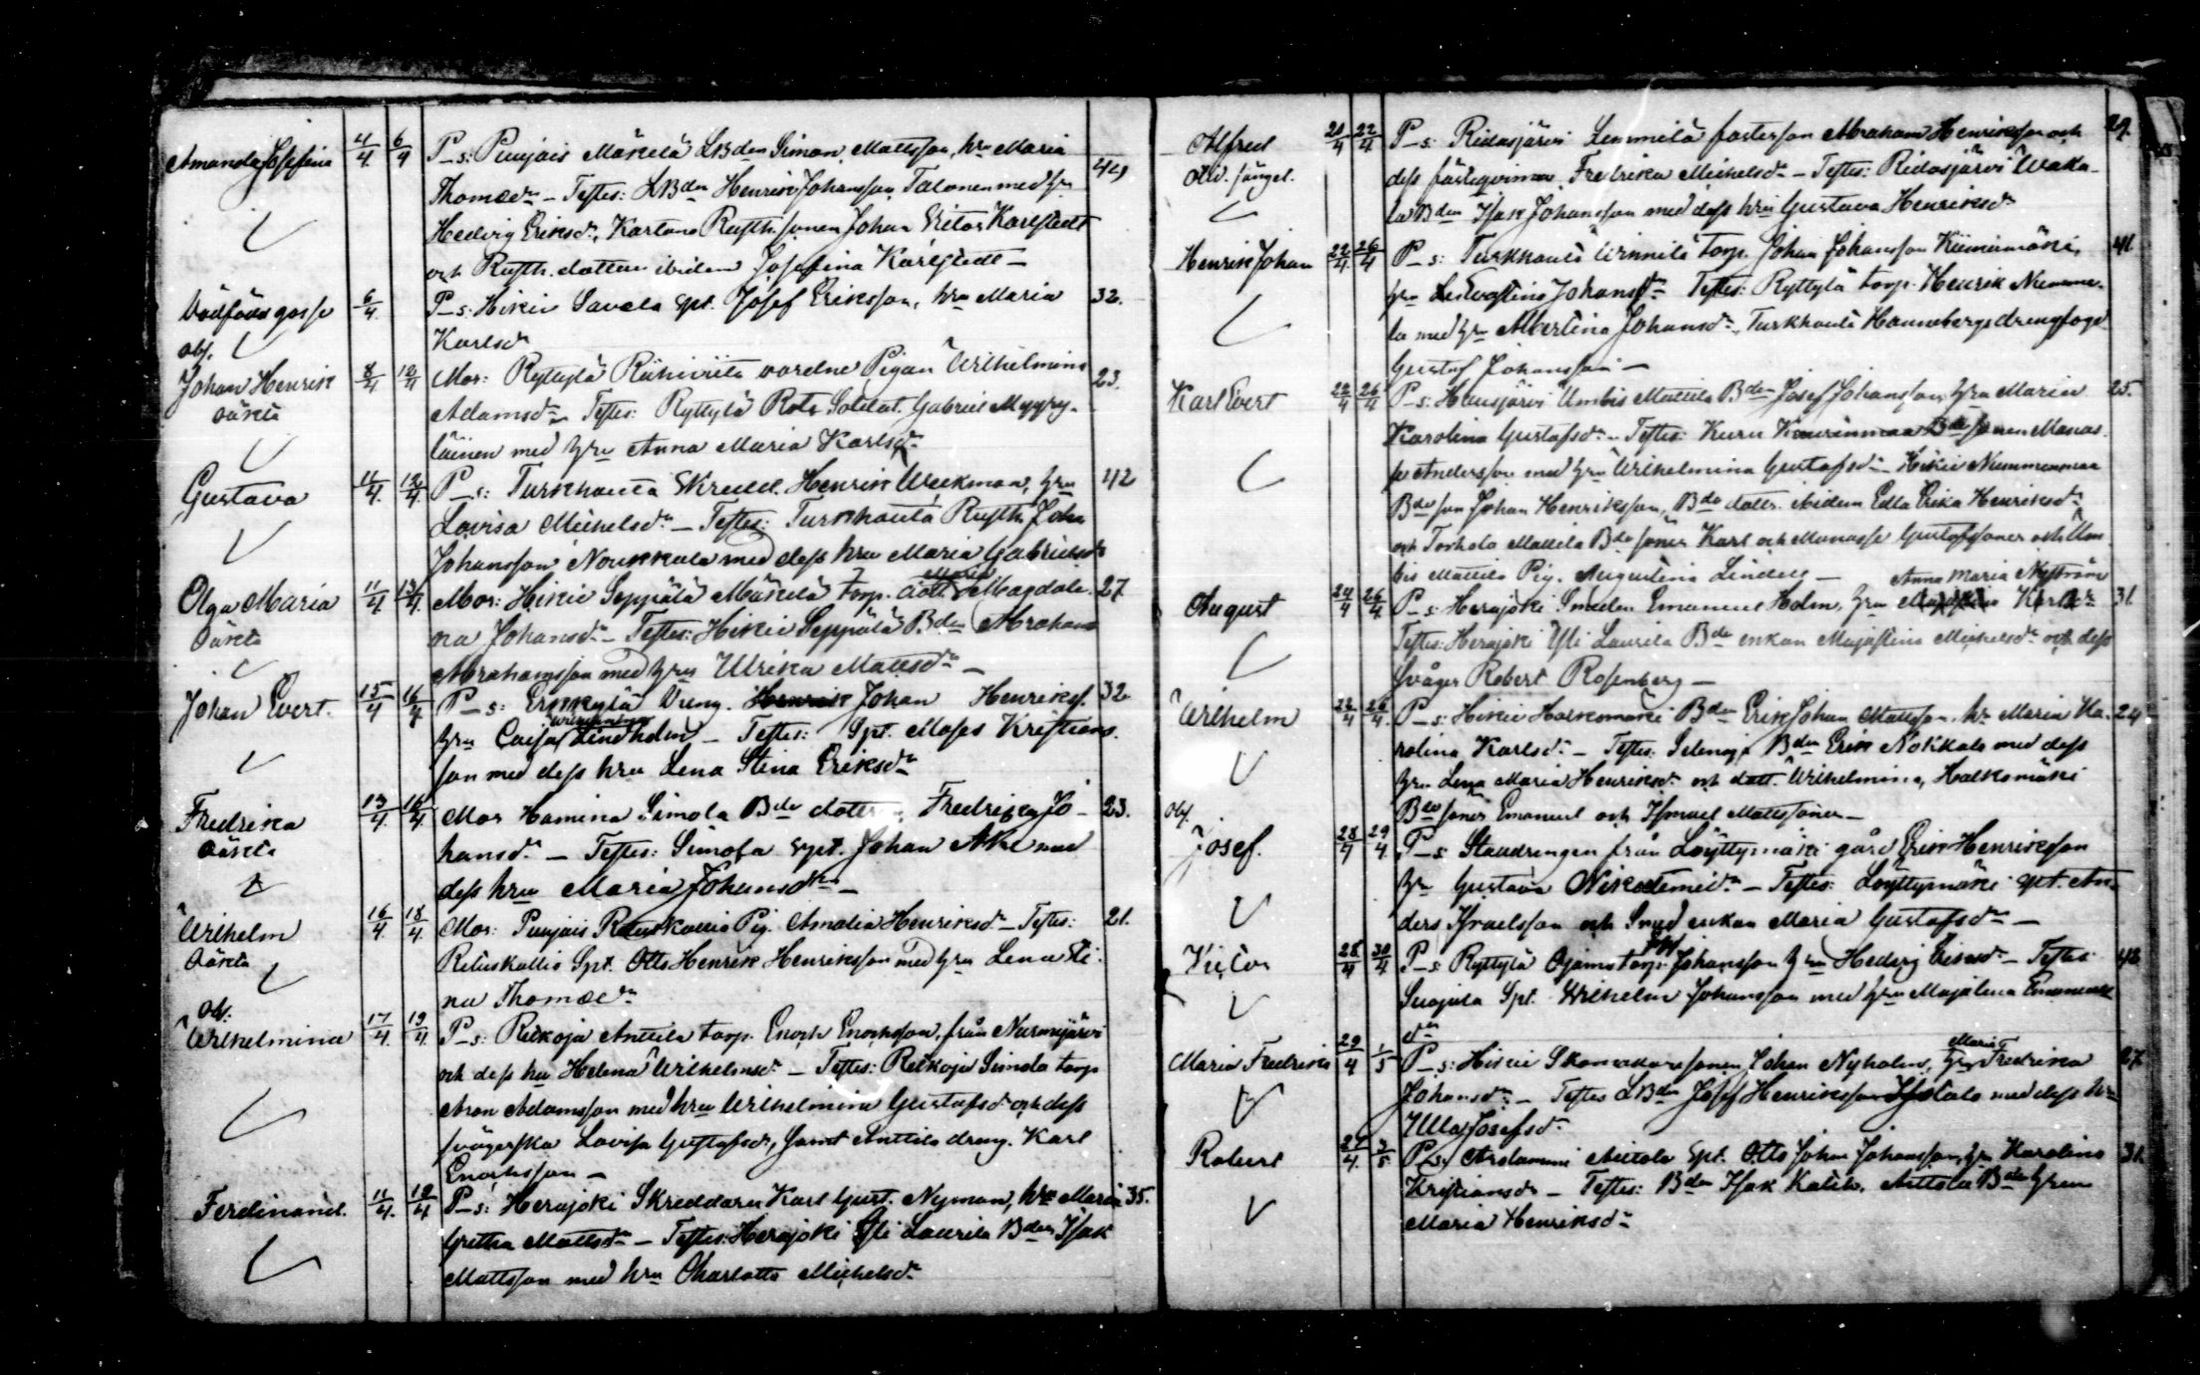 Amanda Josefina 4/4 6/4 P_s: Punjais Mäkelä LBden Simon Mattsson, hru Maria 44
Thomædr – Testes: LBden Henrik Johansson Talonen med hru
Hedvig Eriksdr, Kartano Rusth. sonen Johan Viktor Karlstedt
och Rusth. dottern ibidem Josefina Karlstedt –
Dödfödd gosse 6/4 P_s: Hikiä Savela Spt. Josef Eriksson, hru Maria 32.
obs. Karlsdr
Johan Henrik 8/4 12/4 Mor: Ryttylä Riihiviita varelne Pigan Wilhelmina 23.
oäkta Adamsdr – Testes: Ryttylä Rote Soldat. Gabriel Myyry-
läinen med hru Anna Maria Karlsdr
Gustava 11/4 12/4 P_s: Turkhauta Skredd. Henrik Weckman, hru 42
Lovisa Michelsdr – Testes: Turkhauta Rusth. Johan
Johansson Noukkala med dess hru Maria Gabrielsdr
Olga Maria 11/4 13/4 Mor: Hikiä Seppälä Mäkelä torp. dott. Maria Magdale- 27
oäkta na Johansdr – Testes: Hikiä Seppälä Bden Abraham
Abrahamsson med hru Ulrika Mattsdr –
Johan Evert. 15/4 16/4 P_s: Erkkylä Dreng. Johan Henriks. 32
hru Caisa Wilhelmina Lindholm – Testes: Spt. Moses Kristians-
son med dess hru Lena Stina Eriksdr
Fredrika 13/4 16/4 Mor Hamina Simola Bde dotter Fredrika Jo- 23.
oäkta hansdr – Testes: Simola Spt. Johan Ake med
dess hru Maria Johansdr –
Wilhelm 16/4 18/4 Mor: Punjais Retuskallio Pig. Amalia Henriksdr – Testes: 21.
oäkta Retuskallio Spt. Otto Henrik Henriksson med hru Lena Sti-
na Thomædr
obs.
Wilhelmina 17/4 19/4 P_s: Retkoja Anttila torp. Enoch Enochsson, från Nurmijärvi
och dess hru Helena Wilhelmsdr – Testes: Retkoja Simola torp
Aron Adamsson med hru Wilhelmina Gustafsdr och dess
svägerska Lovisa Gustafsdr, samt Anttila dreng. Karl
Enochsson –
Ferdinand. 11/4 12/4 P_s: Herajoki Skreddaren Karl Gust. Nyman, hru Maria 35.
Gretha Mattsdr – Testes: Herajoki Yli Laurila Bden Isak
Mattsson med hru Charlotta Michelsdr
Alfred 21/4 22/4 P_s: Ridasjärvi Lemmilä fosterson Abraham Henriksson och 29.
dess fästeqvinna Fredrika Michelsdr – Testes: Ridasjärvi Waka-
la Bden Isak Johansson med dess hru Gustava Henriksdr
Henrik Johan 22/4 26/4 P_s: Turkhauta torp. Johan Johansson Kiimamäki, 41.
hru Johansdr Testes: Ryttylä torp. Henrik Numme-
la med hru Albertina Johansdr, Turkhauta Hanneberge drengfoge
Gustaf Johansson –
Karl Evert 22/4 26/4 P_s: Hausjärvi Umbis Mattila Bden Josef Johansson, hru Maria 25.
Karolina Gustafsdr – Testes: Kuru Bde sonen Manas-
se Andersson med hru Wilhelmina Gustafsdr – Hikiä Nummenmaa
Bde son Johan Henriksson, Bde dottr. ibidem Edla Erika Henriksdr
och Torhola Mattila Bde söner Karl och Manasse Gustafssöner och Um-
bis Mattila Pig. Augustina Lindell –
Anna Maria Nyström
August 24/4 26/4 P_s: Herajoki Smeden Emanuel Holm, hru 31.
Testes: Herajoki Yli Laurila Bde enkan Majastina Michelsdr och dess
svåger Robert Rosenberg –
Wilhelm 22/4 26/4 P_s: Hikiä Halkomäki Bden Erik Johan Mattsson, hr Maria Ka- 24
rolina Karlsdr – Testes: Selenoja Bden Erik Nokkala med dess
hru Lena Maria Henriksdr och dott. Wilhelmina, Halkomäki
obs. Bde söner Emanuel och Ismael Mattssöner –
Josef. 28/4 29/4 P_s: Stadrengen från Löyttymäki gård Erik Henriksson
hru Gustava Nikodemidr – Testes: Löyttymäki Spt. An-
ders Israelsson och Smed enkan Maria Gustafsdr –
Victor 28/4 30/4 P_s: Ryttylä Ojanis torp. Johansson hru Hedvig Eriksdr – Testes 42
Suojula Spt. Wilhelm Johansson med hru Majalena Emanuels
dr
Maria Fredrika 29/4 1/5 P_s: Hikiä Skomakaresonen Johan Nyholm, hru Maria Fredrika 27.
Johansdr – Testes LBden Josef Henriksson med dess hru
Ulla Josefsdr
Robert 27/4 3/5 P_s: Arolammi Anttola Spt. Otto Johan Johansson, hru Karolina 31.
Kristiansdr – Testes: Bden Isak Kalik, Anttola Bde hru
Maria Henriksdr